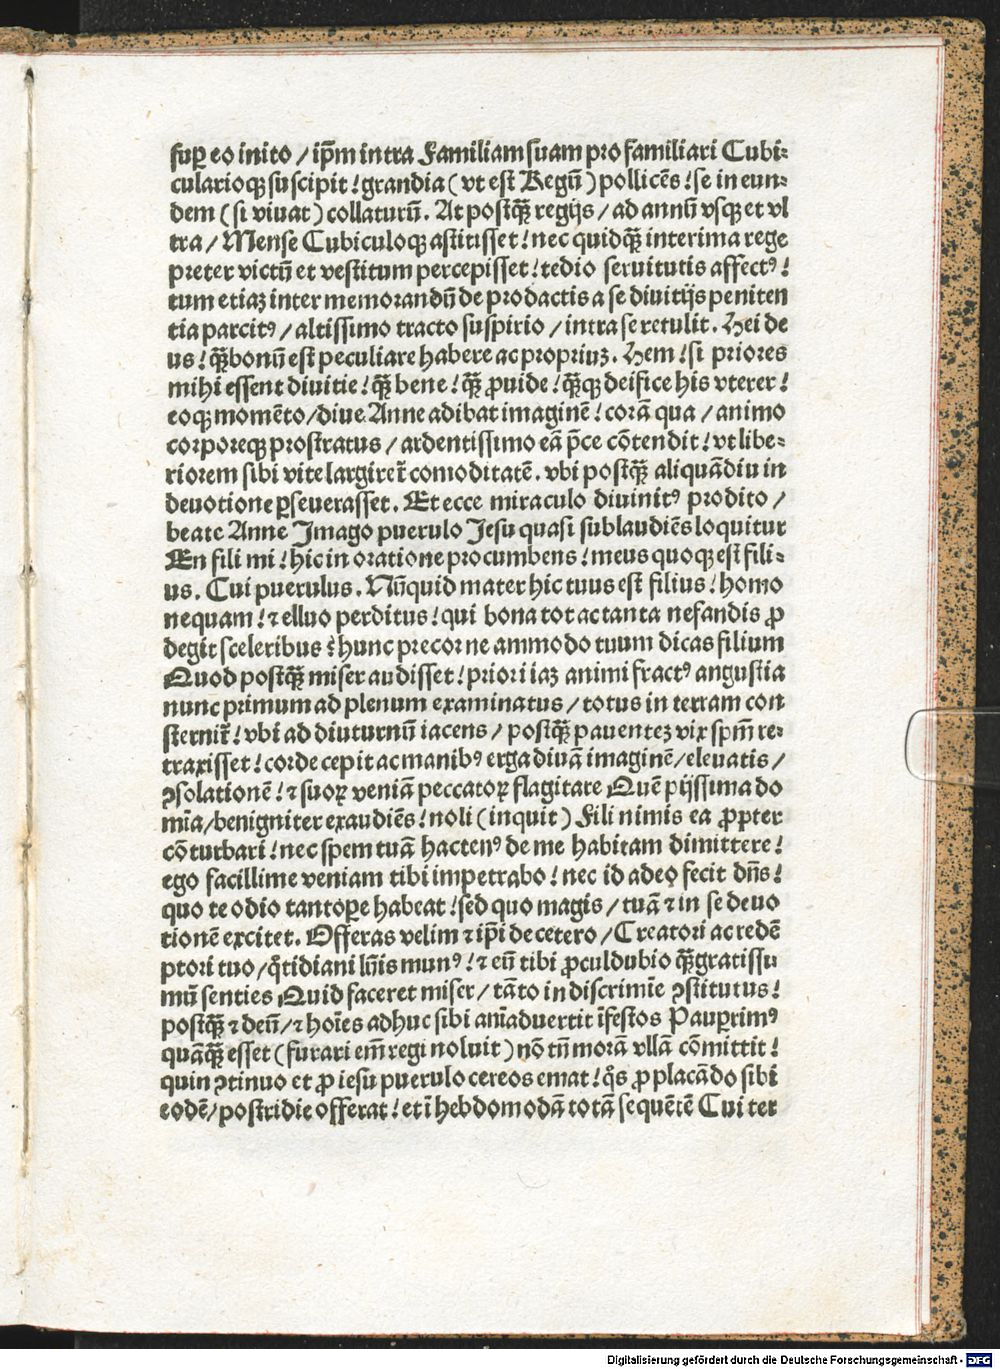 sup̱ eo inito / ip̃m intra Familiam suam pro familiari Cubi⸗
cularioqꝫ suscipit ! grandia ( vt est Regũ ) pollicẽs ! se in eun⸗
dem ( si viuat ) collaturũ . At postqꝫ̃ regijs / ad annũ vsqꝫ et vl
tra / Mense Cubiculoqꝫ astitisset ! nec quidqꝫ̃ interim a rege
preter victũ et vestitum percepisset ! tedio seruitutis affectꝰ !
tum etiaꝫ inter memorandũ de prodactis a se diuitijs peniten
tia parcitꝰ / altissimo tracto suspirio / intra se retulit . Hei de
us ! qꝫ̃ bonũ est peculiare habere ac propriuꝫ . Hem ! si priores
mihi essent diuitie ! qꝫ̃ bene ! qꝫ̃ ꝓuide ! qꝫ̃qꝫ deifice his vterer !
eoqꝫ momẽto / diue Anne adibat imaginẽ ! corã qua / animo
corporeqꝫ prostratus / ardentissimo eã p̃ce cõtendit ! vt libe⸗
riorem sibi vite largiret̃ comoditatẽ . vbi postqꝫ̃ aliquãdiu in
deuotione ꝑseuerasset . Et ecce miraculo diuinitꝰ prodito /
beate Anne Imago puerulo Jesu quasi sublaudiẽs loquitur
En fili mi ! hic in oratione procumbens ! meus quoqꝫ est fili⸗
us . Cui puerulus . Nũquid mater hic tuus est filius ! homo
nequam ! ⁊ elluo perditus ! qui bona tot ac tanta nefandis ꝓ
degit sceleribus hunc precor ne ammodo tuum dicas filium
Quod postqꝫ̃ miser audisset ! priori iaꝫ animi fractꝰ angustia
nunc primum ad plenum examinatus / totus in terram con
sternit̃ ! vbi ad diuturnũ iacens / postqꝫ̃ pauenteꝫ vix spm̃ re⸗
traxisset ! corde cepit ac manibꝰ erga diuã imaginẽ / eleuatis /
ꝯsolationẽ ! ⁊ suoꝝ veniã peccatoꝝ flagitare Quẽ pijssima do
mĩa / benigniter exaudiẽs ! noli ( inquit ) Fili nimis ea ꝓp̱ter
cõturbari ! nec spem tuã hactenꝰ de me habitam dimittere !
ego facillime veniam tibi impetrabo ! nec id adeo fecit dñs !
quo te odio tantoꝑe habeat ! sed quo magis / tuã ⁊ in se deuo
tionẽ excitet . Offeras velim ⁊ ip̃i de cetero / Creatori ac redẽ
ptori tuo / q̃tidiani lũis munꝰ ! ⁊ eũ tibi ꝓculdubio qꝫ̃gratissi
mũ senties Quid faceret miser / tãto in discrimĩe ꝯstitutus !
postqꝫ̃ ⁊ deũ / ⁊ hoĩes adhuc sibi anĩaduertit ĩfestos Pauꝑrimꝰ
quãqꝫ̃ esset ( furari em̃ regi noluit ) nõ tñ morã vllã cõmittit !
quin ꝯtinuo et ꝓ iesu puerulo cereos emat ! q̊s ꝓ placãdo sibi
eodẽ / postridie offerat ! et ĩ hebdomodã totã sequẽtẽ Cui ter
Digitalisierung gefördert durch die Deutsche Forschungsgemeinschaft - DFG